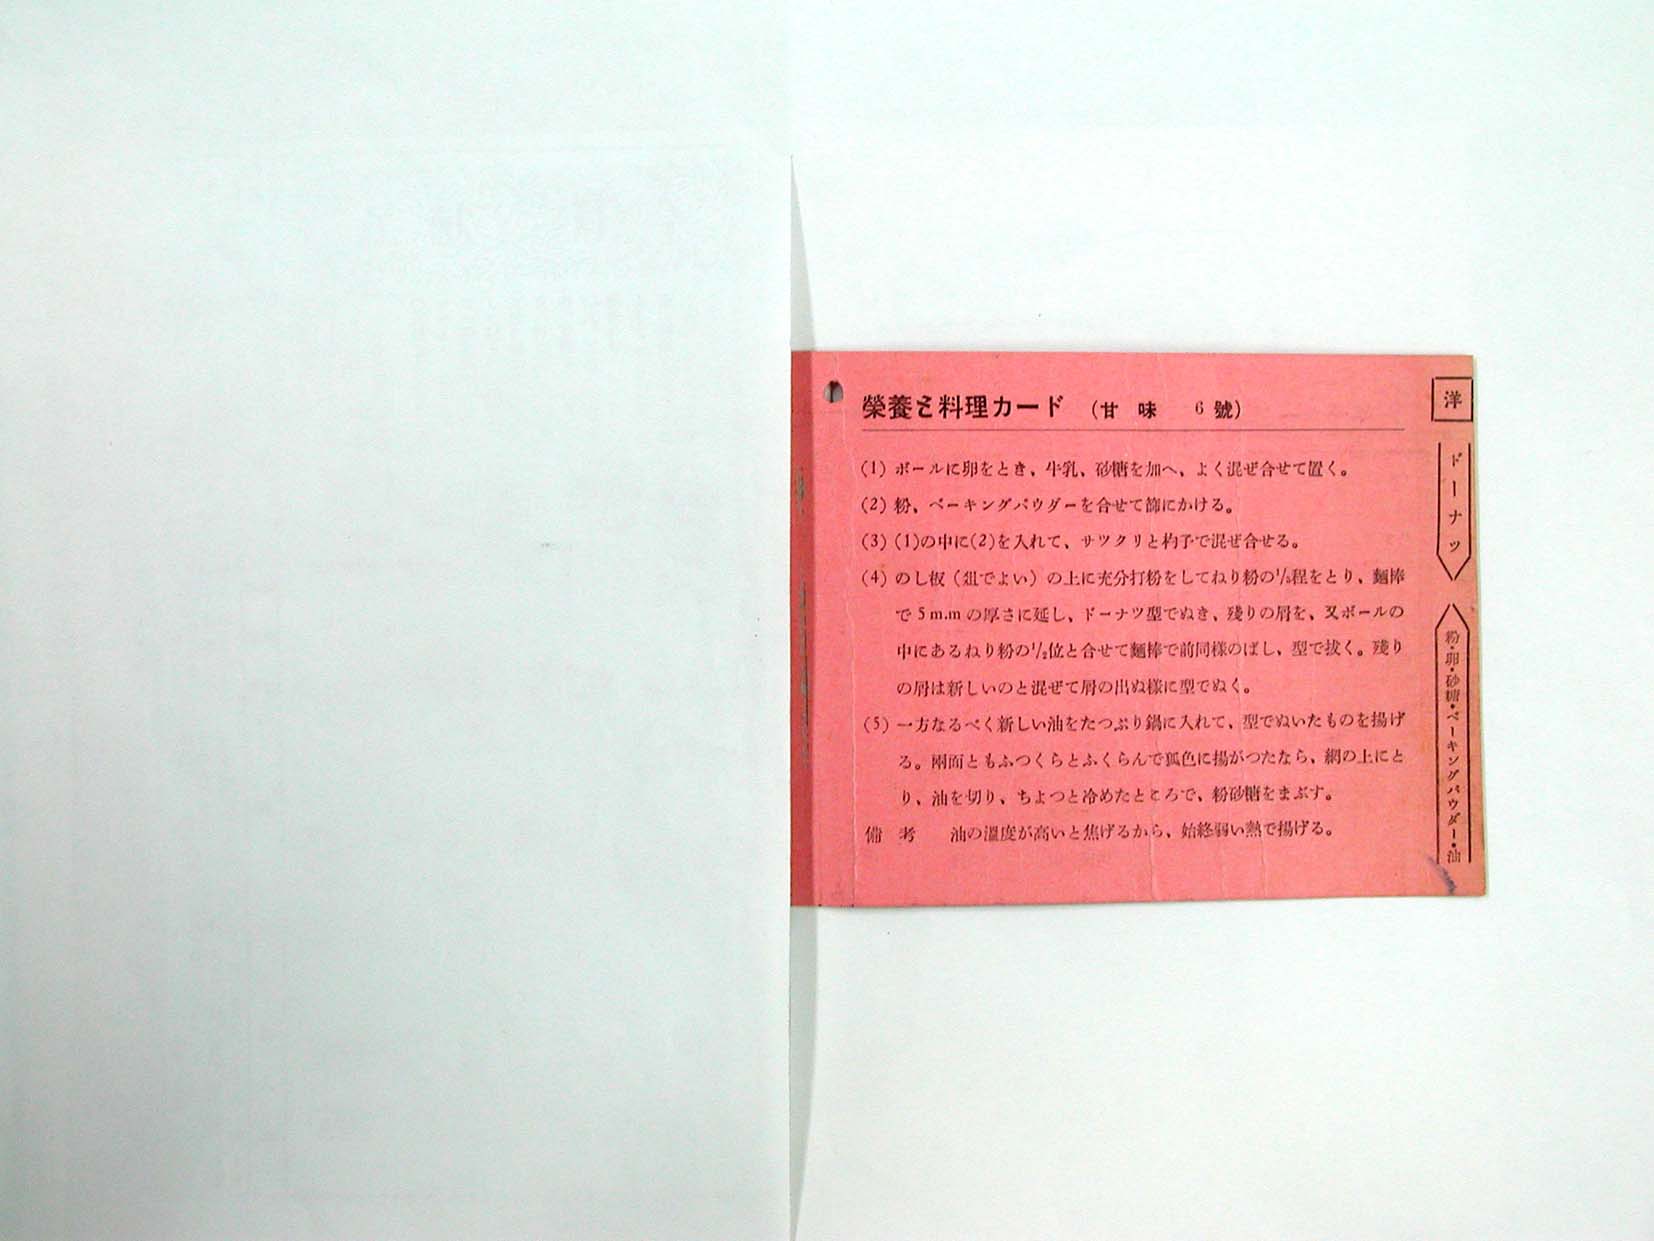 榮養と料理カード (甘味 6號)
(1) ボールに卵をとき、牛乳、砂糖を加へ、よく混ぜ合せて置く。
(2) 粉、ベーキングパウダーを合せて篩にかける。
(3) (1)の中に(2)を入れて、サツクリと杓子で混ぜ合せる。
(4) のし板(俎でよい)の上に充分打粉をしてねり粉の1/3程をとり、麵棒
で5m.mの厚さに延し、ドーナツ型でぬき、残りの屑を、又ボールの
中にあるねり粉の1/2位と合せて麵棒で前同様のばし、型で抜く。残り
の屑は新しいのと混ぜて屑の出ぬ様に型でぬく。
(5) 一方なるべく新しい油をたつぷり鍋に入れて、型でぬいたものを揚げ
る。兩面ともふつくらとふくらんで狐色に揚がつたなら、網の上にと
り、油を切り、ちよつと冷めたところで、粉砂糖をまぶす。
備考 油の溫度が高いと焦げるから、始終弱い熱で揚げる。
洋
ドーナツ
粉・卵・砂糖・ベーキングパウダー・油